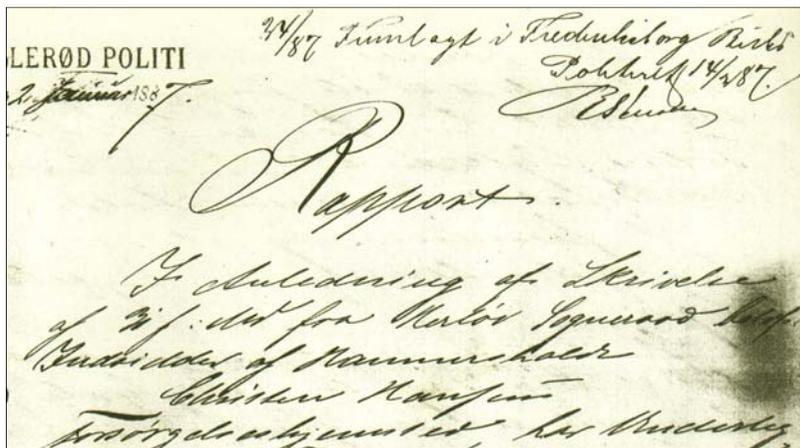 LERØD POLITI
2 Januar 1887.
24/87 Fremlagt i Frederiksborg Birks
Politiret 14/2 87.
Rapport.
I Anledning af Skrivelse
af 31 f: Md fra Herløv Sogneraad
Indsidder af Hammersholdt
Christen Hansens
Forsørgelseshjemsted har Underteg